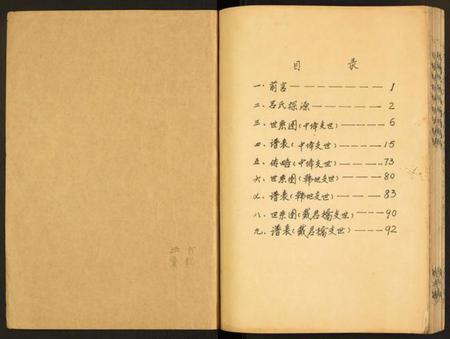 目 录
一、前言 ——————— 1
二、吕氏探源 ————— 2
三、世系图(中埠支世) ——— 6
四、谱表(中埠支世) ———— 15
五、传略(中埠支世) ———— 73
六、世系图(韩地支世) ——— 80
七、谱表(韩地支世) ———— 83
八、世系图(戴吕檎支世) ——— 90
九、谱表(戴吕檎支世) ——— 92